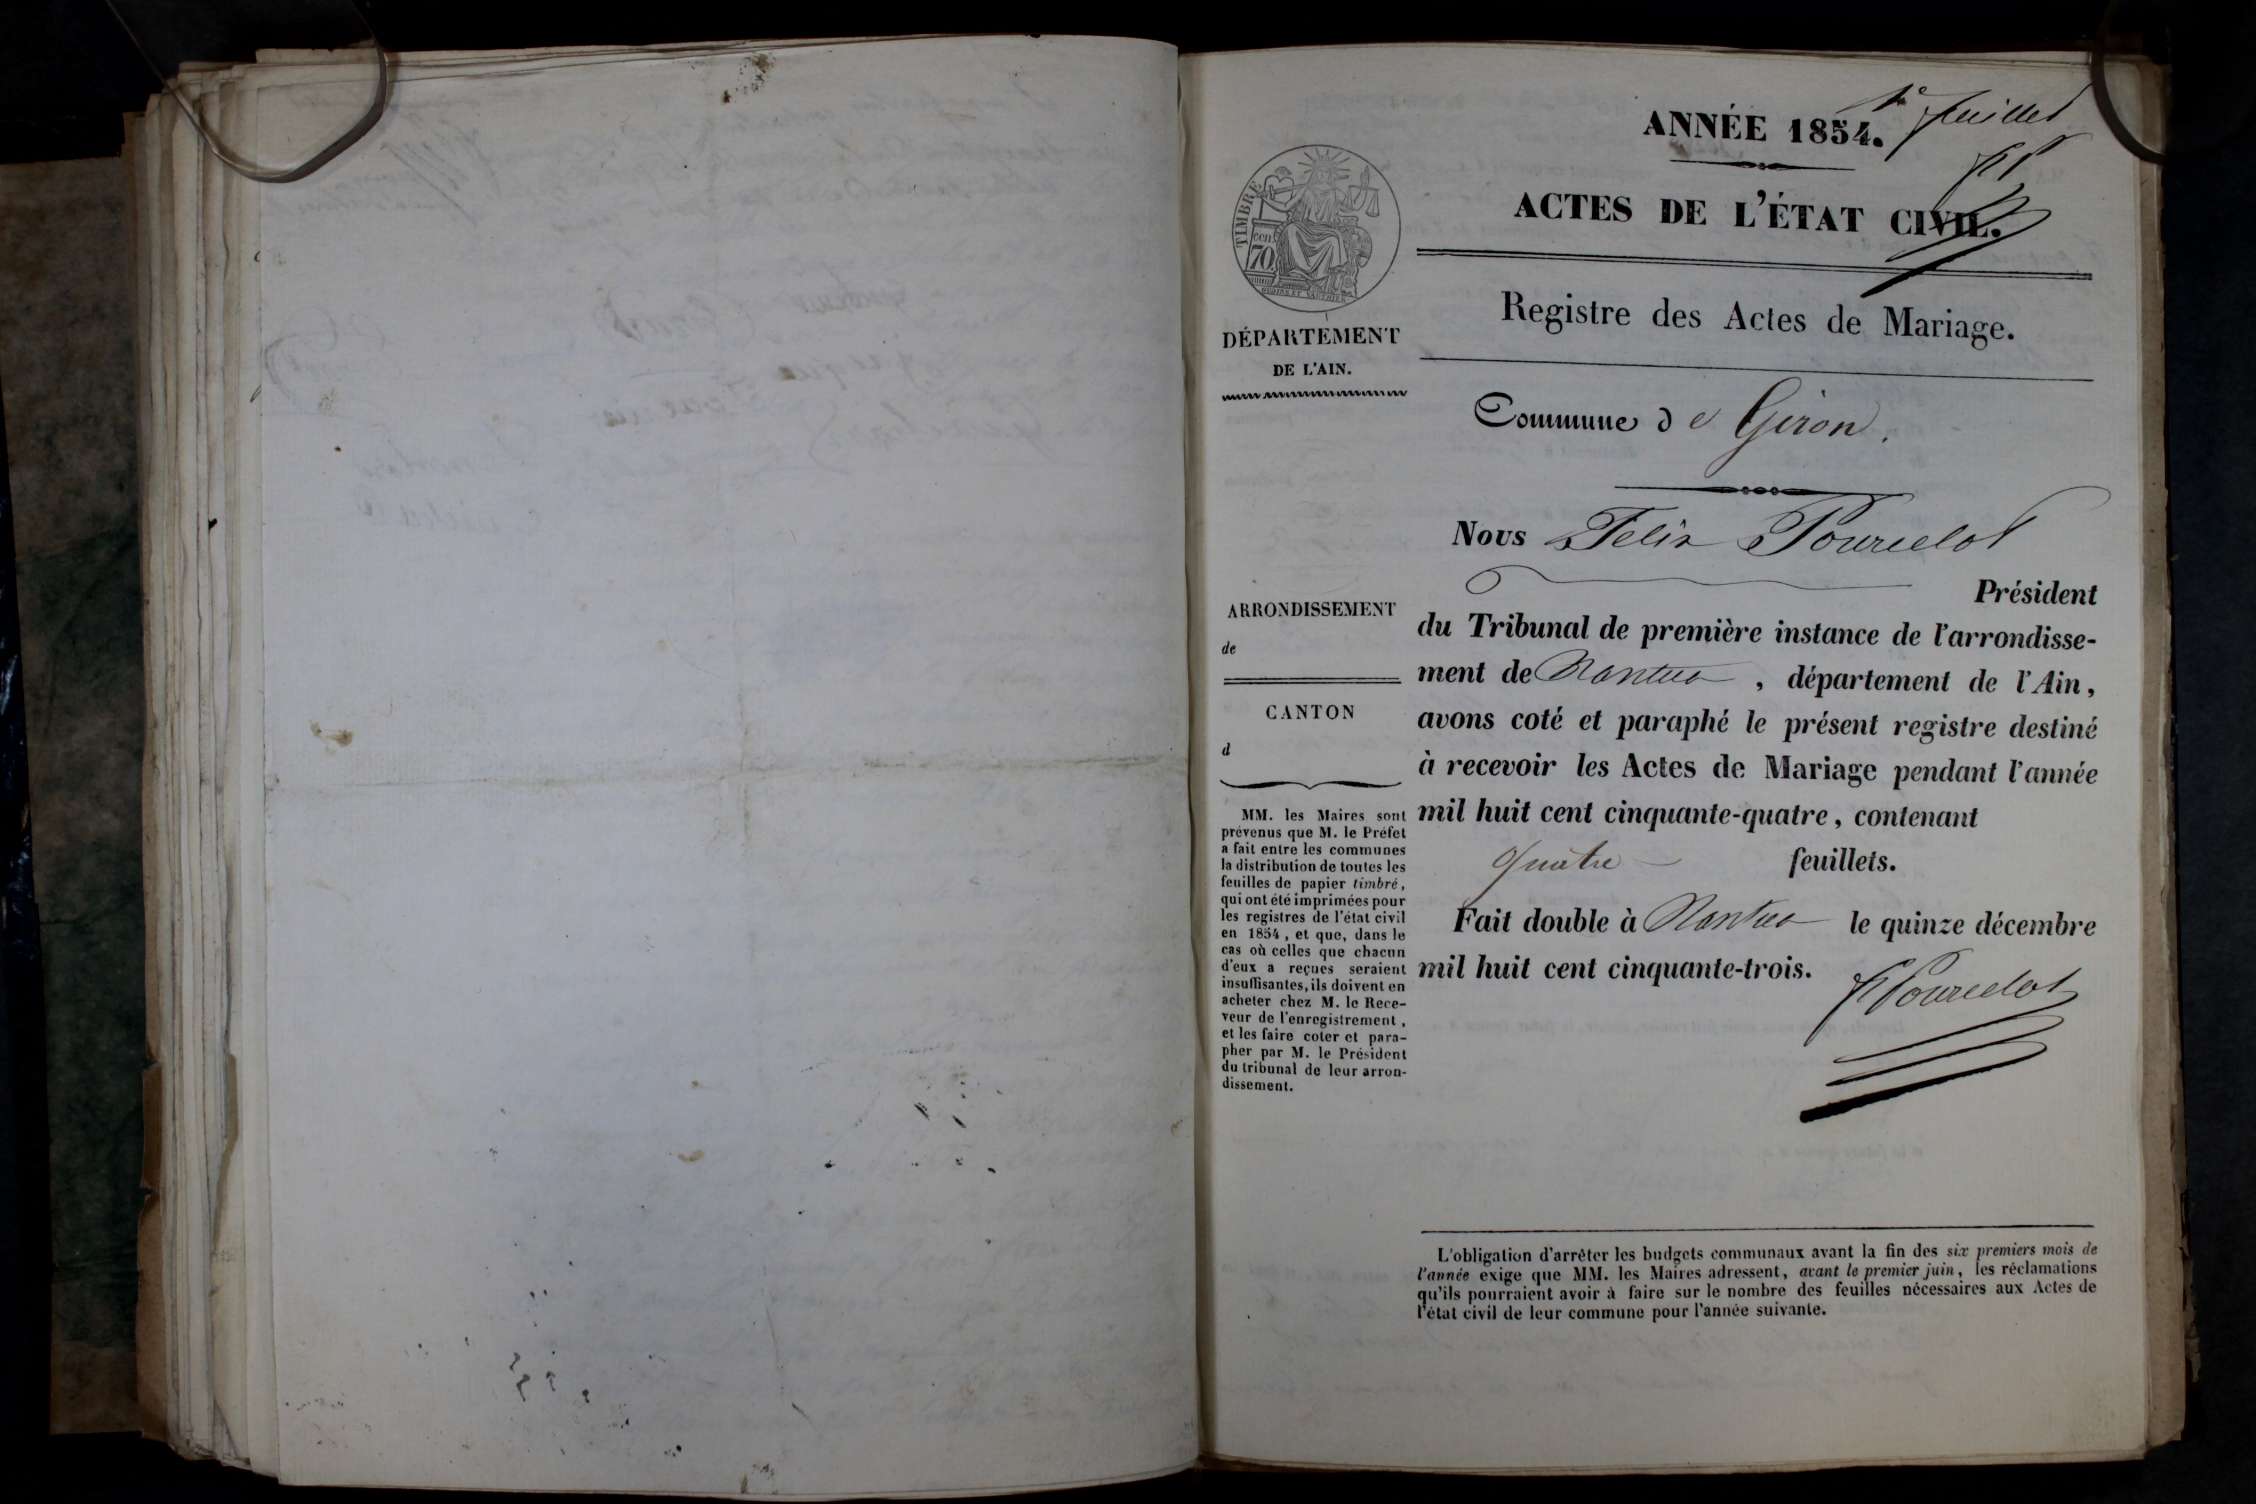 1er feuillet
ANNÉE 1854.
FP
ACTES DE L'ÉTAT CIVIL.
Registre des Actes de Mariage.
TIMBRE
cen
70
DÉPARTEMENT
DE L'AIN.
Commune de Giron.
Nous Felix Pourcelot
Président
du Tribunal de première instance de l'arrondisse-
ment de Nantua, département de l'Ain,
avons coté et paraphé le présent registre destiné
à recevoir les Actes de Mariage pendant l'année
mil huit cent cinquante-quatre, contenant
quatre feuillets.
Fait double à Nantua le quinze décembre
mil huit cent cinquante-trois.
FPourcelot
ARRONDISSEMENT
de
CANTON
d
MM. les Maires sont
prévenus que M. le Préfet
a fait entre les communes
la distribution de toutes les
feuilles de papier timbré,
qui ont été imprimées pour
les registres de l'état civil
en 1854, et que, dans le
cas où celles que chacun
d'eux a reçues seraient
insuffisantes, ils doivent en
acheter chez M. le Rece-
veur de l'enregistrement,
et les faire coter et para-
pher par M. le Président
du tribunal de leur arron-
dissement.
L'obligation d'arrêter les budgets communaux avant la fin des six premiers mois de
l'année exige que MM. les Maires adressent, avant le premier juin, les réclamations
qu'ils pourraient avoir à faire sur le nombre des feuilles nécessaires aux Actes de
l'état civil de leur commune pour l'année suivante.